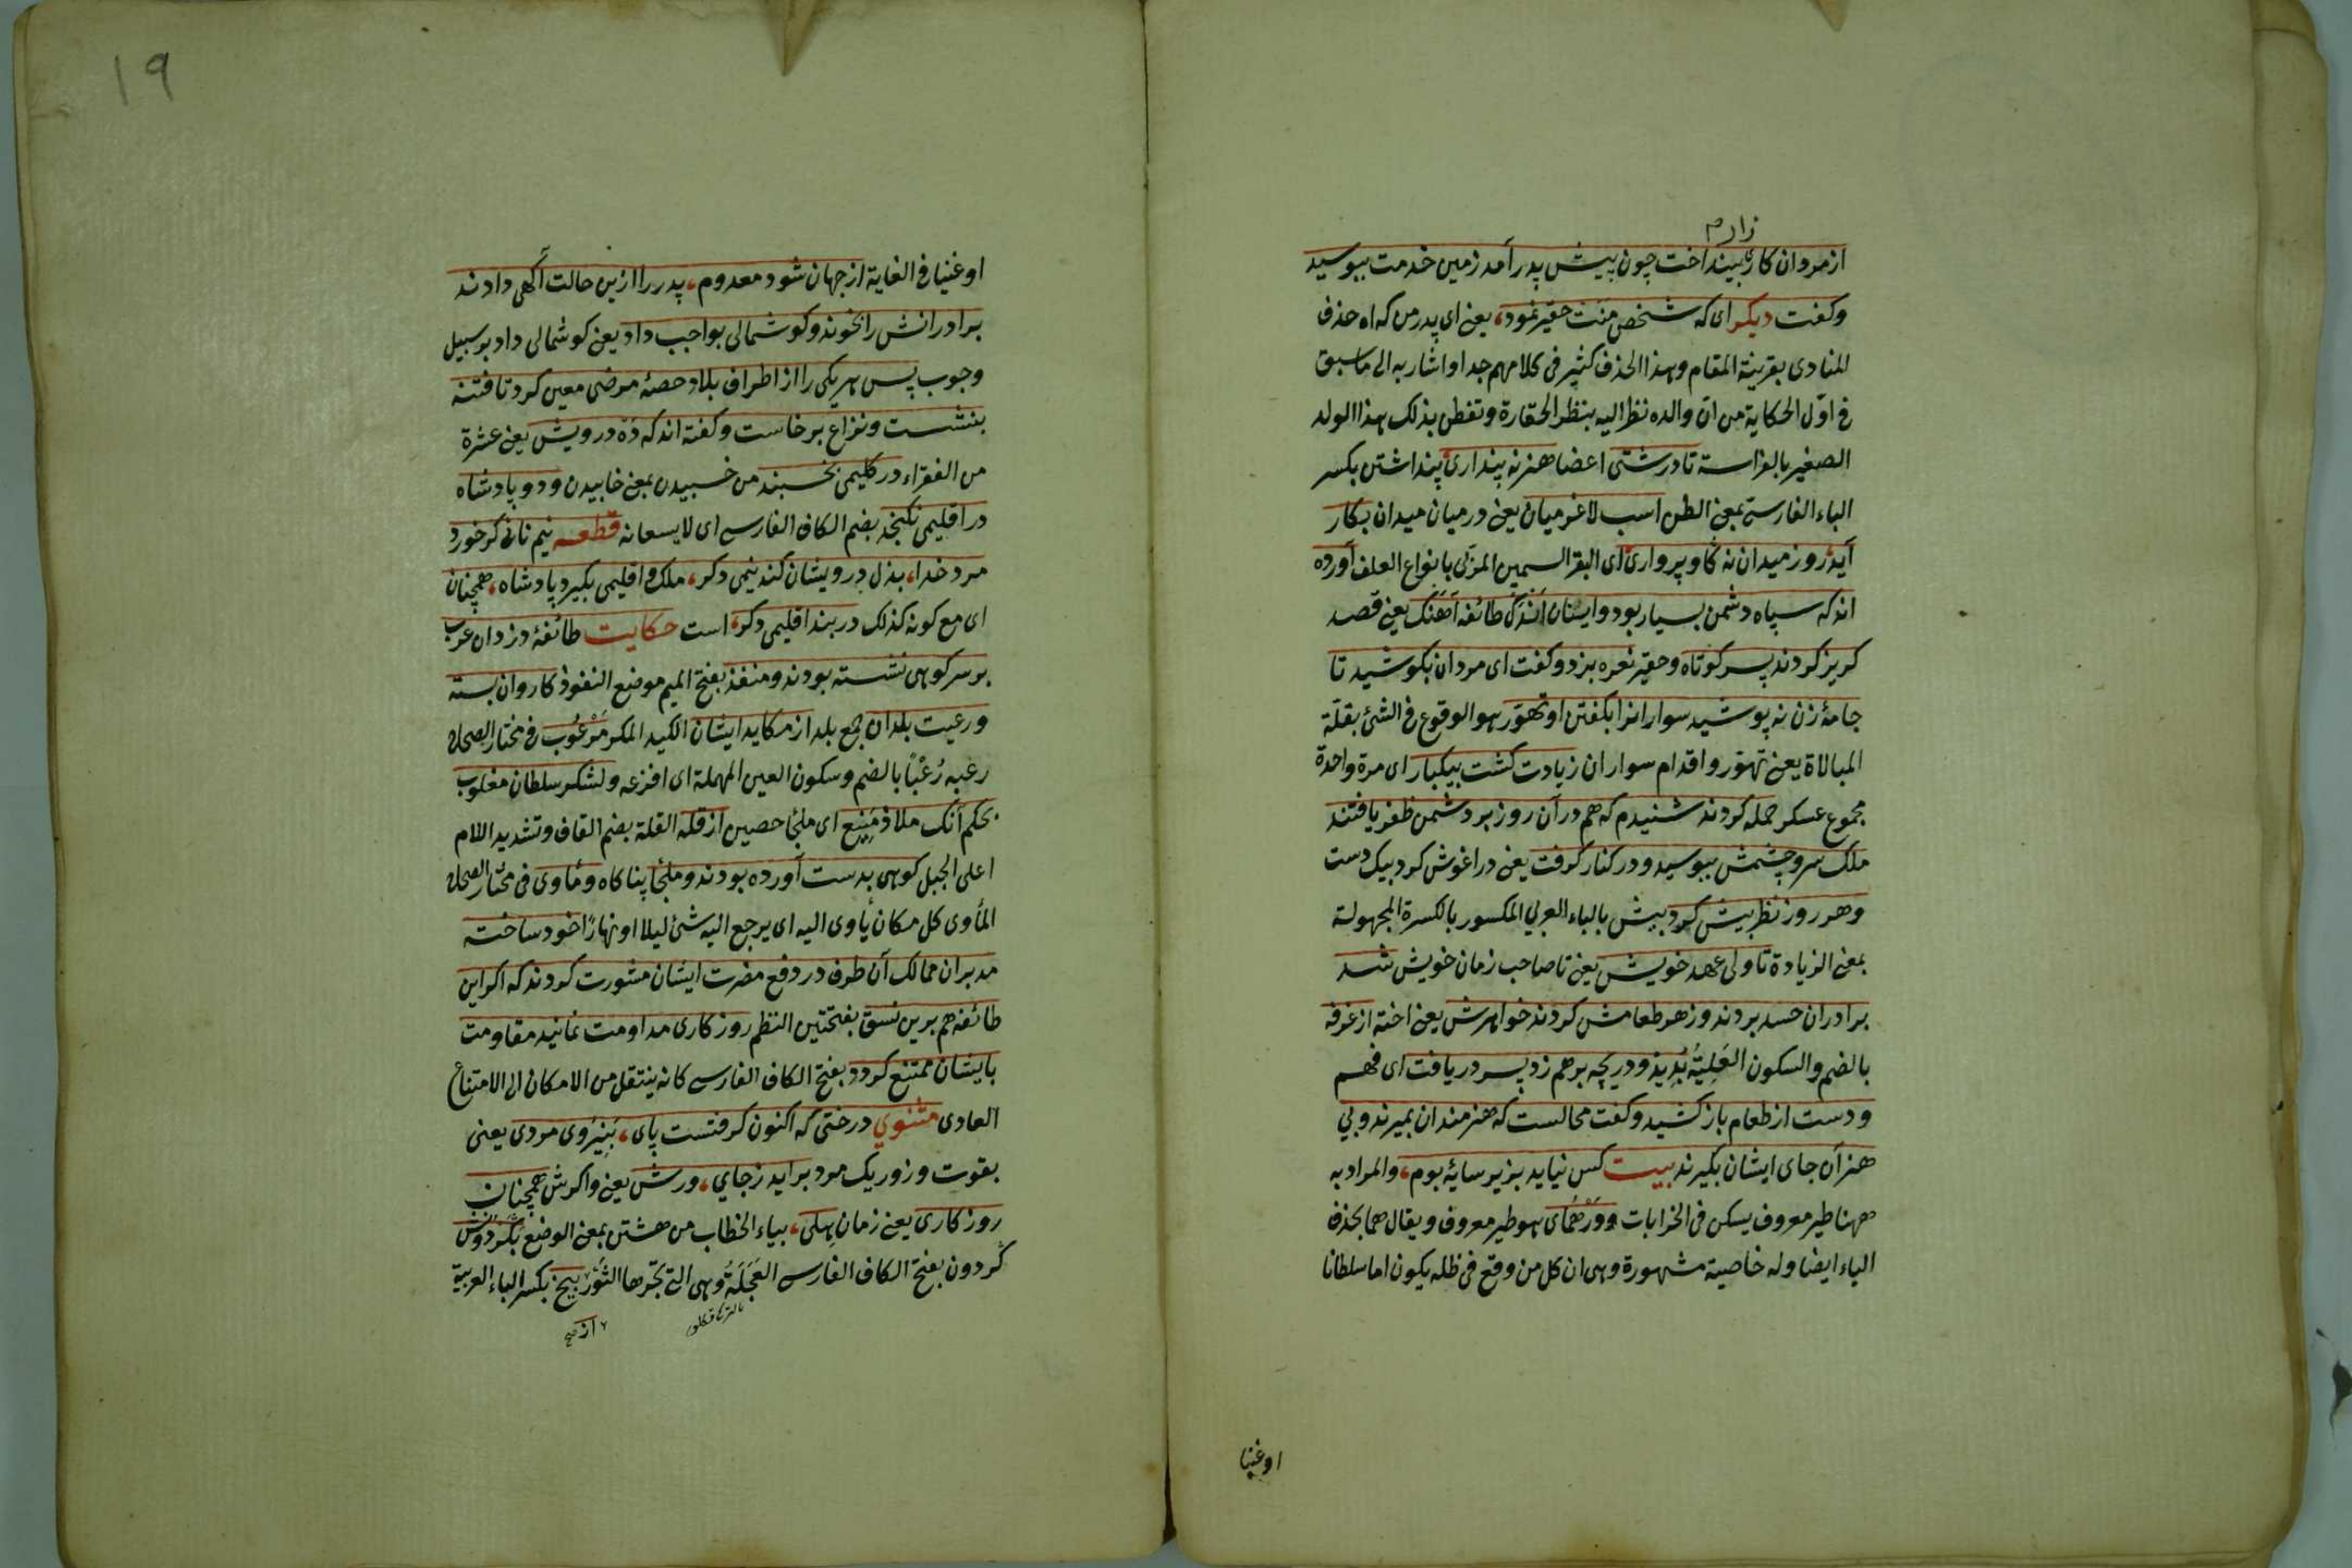 زارم
از مردان کاری بینداخت چون پیش پدر آمد زمین خدمت ببوسید
وکفت دیکر ای که شخص منت حقیر نمود، یعنی ای پدر من که اه حذف
المنادی بقرینة المقام وهذا الحذف کثیر فی کلامهم جدا واشار به الی ما سبق
فی اوّل الحکایة من ان والده نظر الیه بنظر الحقارة وتفطن بذلک هذا الولد
الصغیر بالفراسة تا درشتی اعضا هنر نه پنداری پنداشتن بکسر
الباء الفارسی بمعنی الظن اسب لاغر میان یعنی در میان میدان بکار
آید روز میدان نه کاو پرواری ای البقر السمین المربّی بانواع العلف آورده
اند که سپاه دشمن بسیار بود وایشان اَندَک طائفه آهَنک یعنی قصد
کریز کردند پسر کوتاه وحقیر نعره بزد وکفت ای مردان بکوشید تا
جامهٔ زن نه پوشید سوارانرا بکفتن او تهوّر هو الوقوع فی الشئ بقلّة
المبالاة یعنی تهوّر واقدام سواران زیادت کشت بیکبار ای مرة واحدة
مجموع عسکر حمله کردند شنیدم که هم در آن روز بر دشمن ظفر یافتند
ملک سر وچشمش ببوسید ودر کنار کرفت یعنی در اغوش کرد بیک دست
وهر روز نظر بیش کرد بیش بالباء العربی المکسور بالکسرة المجهولة
بمعنی الزیادة تا ولی عهد خویش یعنی تا صاحب زمان خویش شد
برادران حسد بردند وزهر طعامش کردند خواهرش یعنی اخته از غرفه
بالضم والسکون العَلِیّةُ بُدِید ودریچه بر هم زد پسر دریافت ای فهم
ودست از طعام باز کشید وکفت محالست که هنرمندان بمیرند وبی
هنران جای ایشان بکیرند بیت کس نیاید بزیر سایهٔ بوم، والمراد به
ههنا طیر معروف یسکن فی الخرابات وَوَر هُمای هو طیر معروف ویقال هما بحذف
الیاء ایضا وله خاصیة مشهورة وهی ان کل من وقع فی ظله یکون اما سلطانا
اوغنیا
۱۹
اوغنیا فی الغایة از جهان شود معدوم، پدر را ازین حالت آکهی دادند
برادرانش را بخوند وکوشمالی بواجب داد یعنی کوشمالی داد بر سبیل
وجوب پس هر یکی را از اطراف بلاد حصهٔ مرضی معین کرد تا فتنه
بنشست ونزاع برخاست وکفته اند که دَه درویش یعنی عشرة
من الفقراء در کلیمی بخسبند من خسبیدن بمعنی خابیدن ودو پادشاه
در اقلیمی نکنجد بضم الکاف الفارسی ای لا یسعانه قطعه نیم نانی کر خورد
مرد خدا، بذل درویشان کند نیمی دکر، ملک اقلیمی بکیرد پادشاه، همچنان
ای مع کونه کذلک در بند اقلیمی دکر، است حکایت طائفهٔ دزدان عرب
بر سر کوهی نشسته بودند ومنفذ بفتح المیم موضع النفوذ کاروان بسته
ورعیت بلدان جمع بلد از مکاید ایشان الکید المکر مَرْعُوب فی مختار الصحاح
رعبه رُعْبًا بالضم وسکون العین المهملة ای افزعه ولشکر سلطان مغلوب
بحکم آنک ملاذ مَنِیع ای ملجأ حصین از قله القلة بضم القاف وتشدید اللام
اعلی الجبل کوهی بدست آورده بودند وملجأ پناکاه ومأوی فی مختار الصحاح
المأوی کل مکان یأوی الیه ای یرجع الیه شئ لیلا او نهارًا خود ساخته
مدبران ممالک آن طرف در دفع مضرت ایشان مشورت کردند که اکر این
طائفه هم برین نسق بفتحتین النظم روزکاری مداومت نمانید مقاومت
بایشان ممتنع کردد بفتح الکاف الفارسی کانه ینتقل من الامکان الی الامتناع
العادی مثنوی درختی که اکنون کرفتست پای، بَنِیرُوی مردی یعنی
بقوت وزور یک مرد بر اید ز جای، ورش یعنی واکرش همچنان
روزکاری یعنی زمان هِلی، بیاء الخطاب من هشتن بمعنی الوضع بکَردونش
کردون بفتح الکاف الفارسی العَجَلَةُ وهی التی تجرها الثَور بیخ بکسر الباء العربیة
از صح